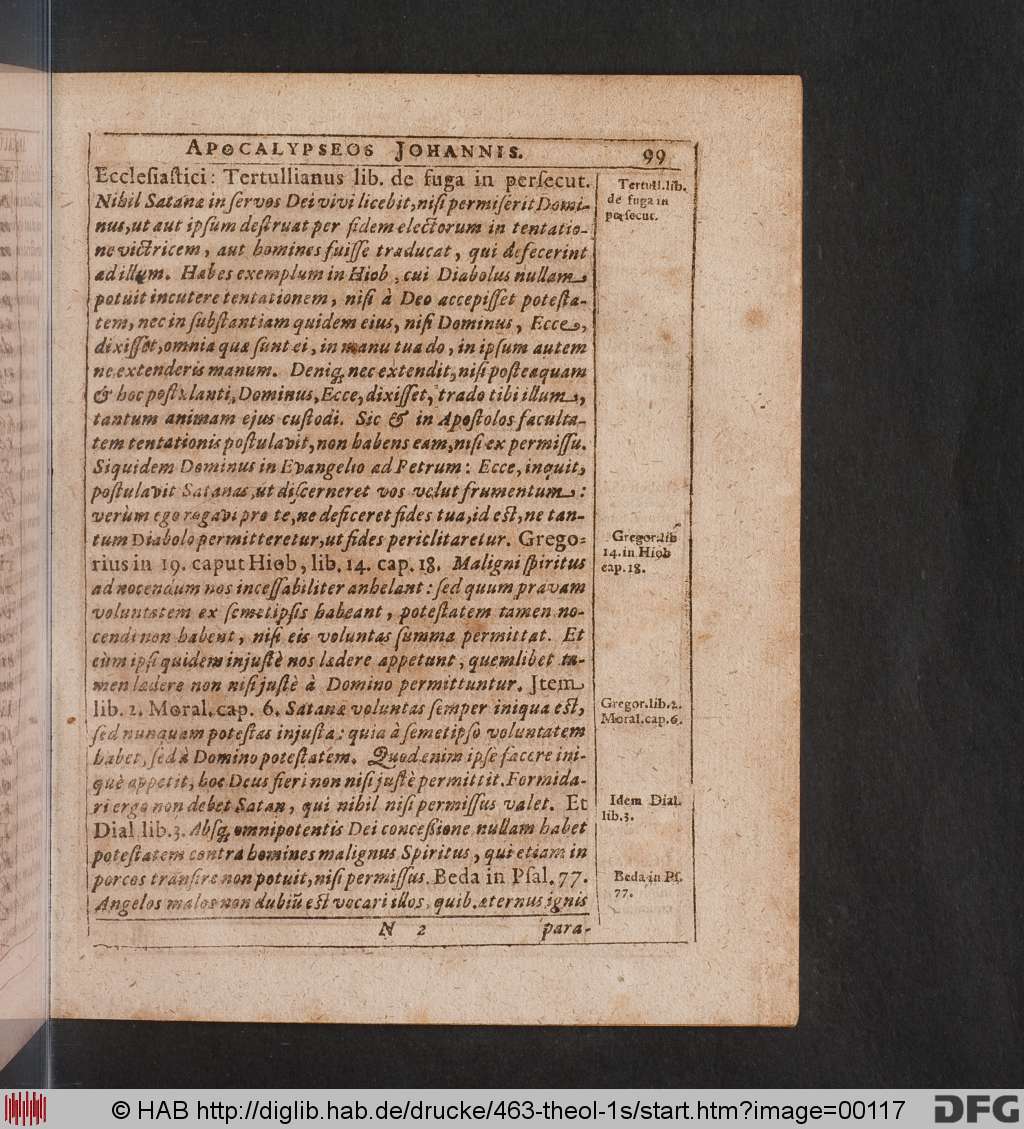 APOCALYPSEOS JOHANNIS. 99
Ecclesiastici: Tertullianus lib. de fuga in persecut.
Nihil Satanæ in servos Dei vivi licebit, nisi permiserit Domi-
nus, ut aut ipsum destruat per fidem electorum in tentatio-
ne victricem, aut homines fuisse traducat, qui defecerint
ad illum. Habes exemplum in Hiob, cui Diabolus nullam
potuit incutere tentationem, nisi à Deo accepisset potesta-
tem, nec in substantiam quidem eius, nisi Dominus, Ecce,
dixisset, omnia quæ sunt ei, in manu tua do, in ipsum autem
ne extenderis manum. Deniq; nec extendit, nisi posteaquam
& hoc postulanti, Dominus, Ecce, dixisset, trado tibi illum,
tantum animam ejus custodi. Sic & in Apostolos faculta-
tem tentationis postulavit, non habens eam, nisi ex permissu.
Siquidem Dominus in Evangelio ad Petrum: Ecce, inquit,
postulavit Satanas, ut discerneret vos velut frumentum:
verùm ego rogavi pro te, ne deficeret fides tua, id est, ne tan-
tum Diabolo permitteretur, ut fides periclitaretur. Grego-
rius in 19. caput Hiob, lib. 14. cap. 18. Maligni spiritus
ad nocendum nos incessabiliter anhelant: sed quum pravam
voluntatem ex semetipsis habeant, potestatem tamen no-
cendi non habent, nisi eis voluntas summa permittat. Et
cùm ipsi quidem injustè nos lædere appetunt, quemlibet ta-
men lædere non nisi justè à Domino permittuntur. Jtem
lib. 2. Moral. cap. 6. Satanæ voluntas semper iniqua est,
sed nunquam potestas injusta: quia à semetipso voluntatem
habet, sed à Domino potestatem. Quod enim ipse facere ini-
què appetit, hoc Deus fieri non nisi justè permittit. Formida-
ri ergo non debet Satan, qui nihil nisi permissus valet. Et
Dial. lib. 3. Absq; omnipotentis Dei concessione nullam habet
potestatem contra homines malignus Spiritus, qui etiam in
porcos transire non potuit, nisi permissus. Beda in Psal. 77.
Angelos malos non dubiū est vocari illos, quib. æternus ignis
N 2 para-
Tertull. lib.
de fuga in
persecut.
Gregor. lib
14. in Hiob
cap. 18.
Gregor. lib. 2.
Moral. cap. 6.
Idem Dial.
lib. 3.
Beda in Ps.
77.
© HAB http://diglib.hab.de/drucke/463-theol-1s/start.htm?image=00117
DFG